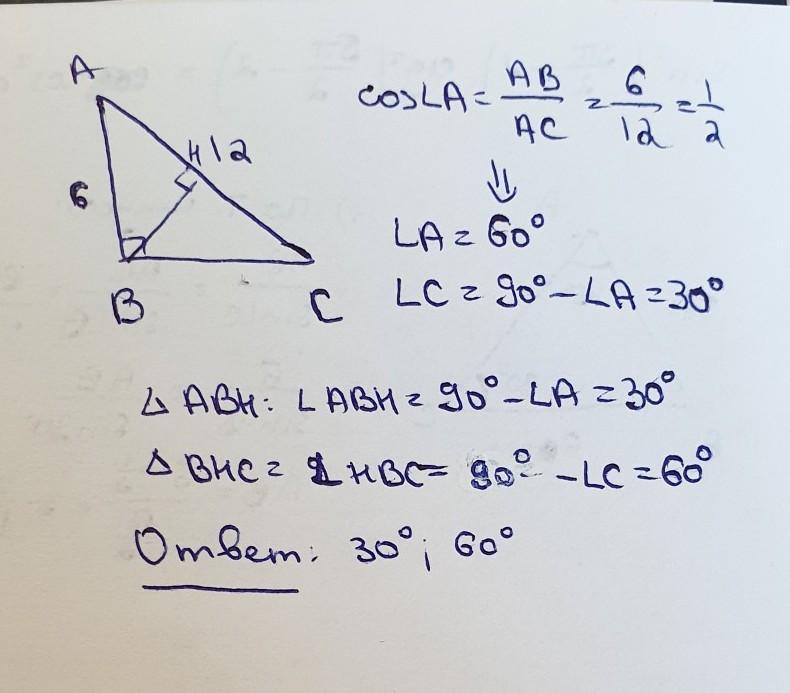 A
cos∠A = AB/AC = 6/12 = 1/2
H 12
⇓
6
∠A = 60°
B C
∠C = 90° - ∠A = 30°
△ ABH: ∠ABH = 90° - ∠A = 30°
△ BHC = ∠HBC = 90° - ∠C = 60°
Ответ: 30°; 60°